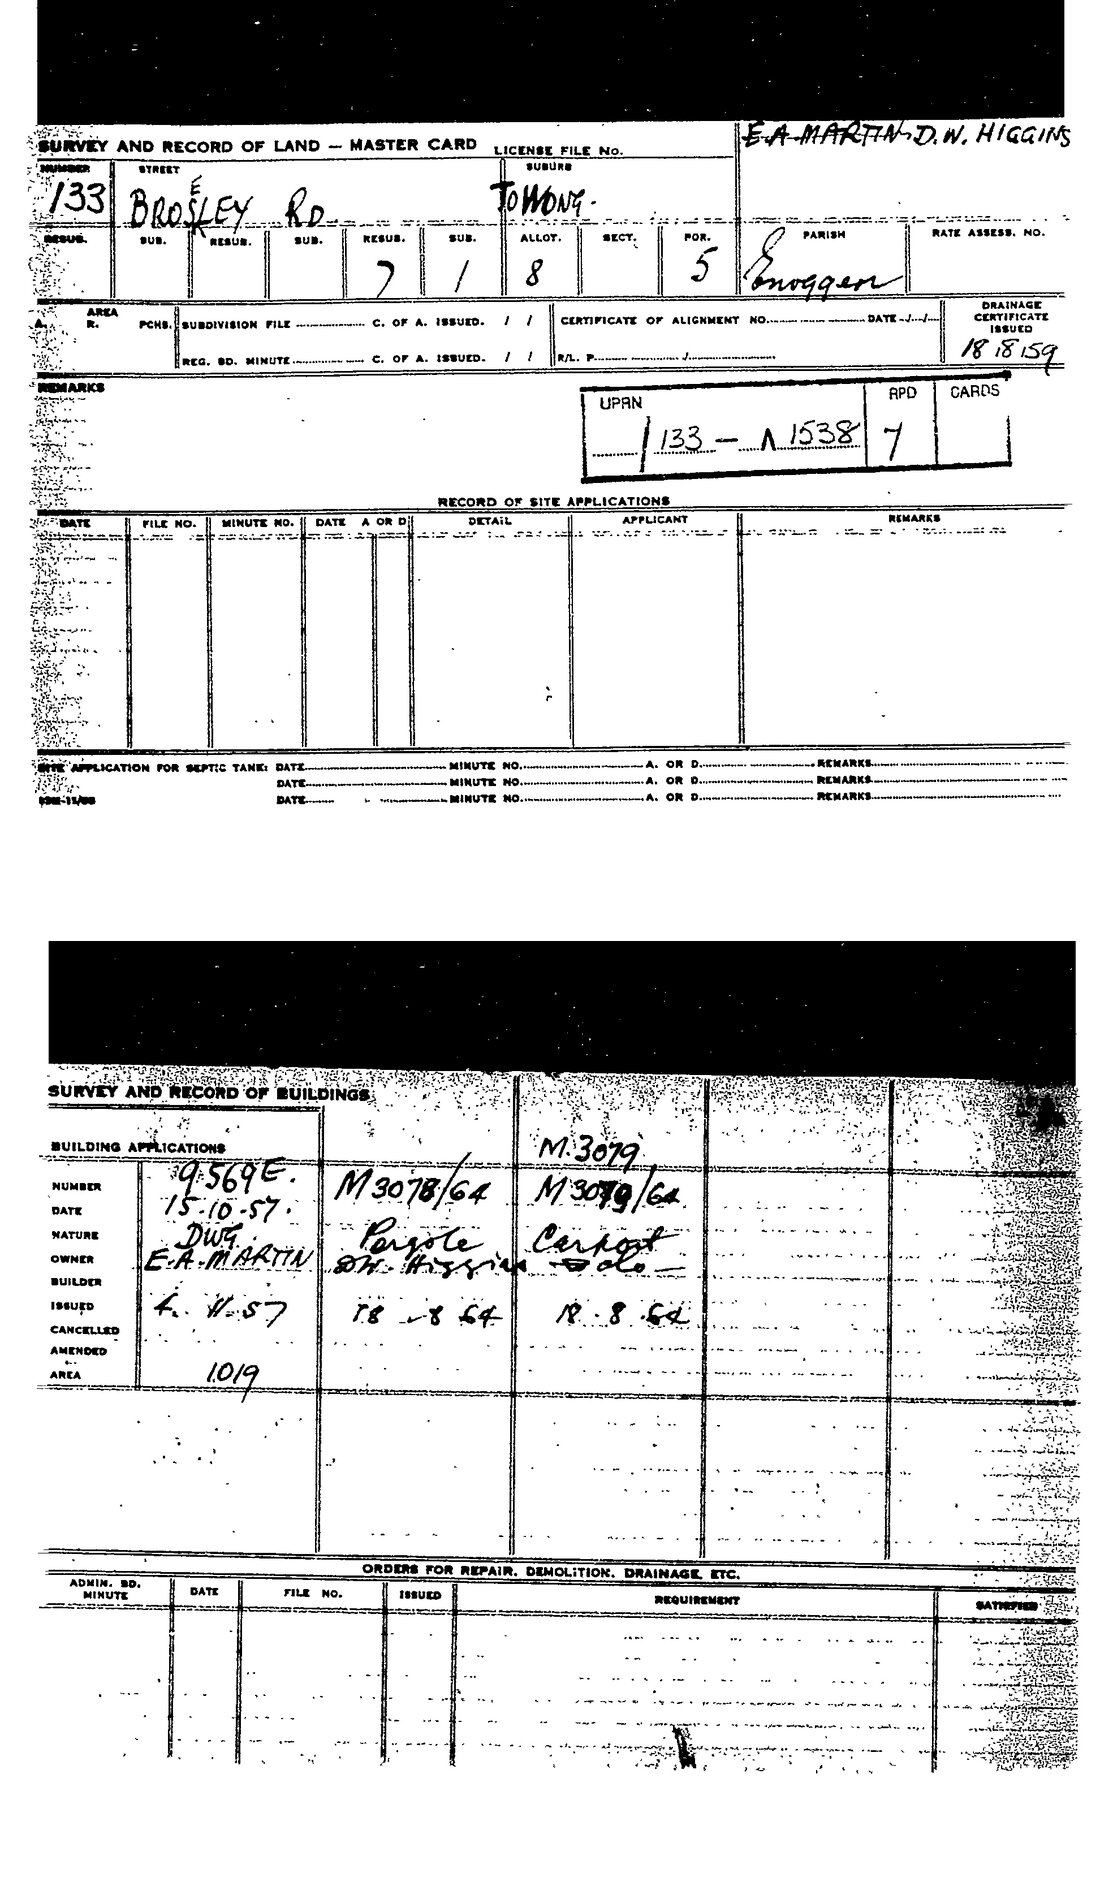 E.A. MARTIN D.W. HIGGINS
SURVEY AND RECORD OF LAND — MASTER CARD LICENSE FILE No.
NUMBER STREET SUBURB
133 BROSELEY RD. TOWONG.
RESUB. SUB. RESUB. SUB. RESUB. SUB. ALLOT. SECT. POR. PARISH RATE ASSESS. NO.
7 1 8 5 Enoggera
AREA
A. R. PCHS. SUBDIVISION FILE C. OF A. ISSUED. / / CERTIFICATE OF ALIGNMENT NO. DATE / / DRAINAGE CERTIFICATE ISSUED
REG. BD. MINUTE C. OF A. ISSUED. / / R/L. P. / 18/8/59
REMARKS
UPRN RPD CARDS
/ 133 — A 1538 7
RECORD OF SITE APPLICATIONS
DATE FILE NO. MINUTE NO. DATE A OR D DETAIL APPLICANT REMARKS
SITE APPLICATION FOR SEPTIC TANK: DATE MINUTE NO. A. OR D. REMARKS
DATE MINUTE NO. A. OR D. REMARKS
DATE MINUTE NO. A. OR D. REMARKS
SURVEY AND RECORD OF BUILDINGS
BUILDING APPLICATIONS M.3079
NUMBER 9569E. M3078/64 M3079/64
DATE 15.10.57.
NATURE DWG. Pergola Carport
OWNER E.A. MARTIN D.W. Higgins — do —
BUILDER
ISSUED 4. 11. 57 18 - 8 64 18 . 8 . 64
CANCELLED
AMENDED
AREA 1019
ORDERS FOR REPAIR, DEMOLITION, DRAINAGE, ETC.
ADMIN. BD. MINUTE DATE FILE NO. ISSUED REQUIREMENT SATISFIED